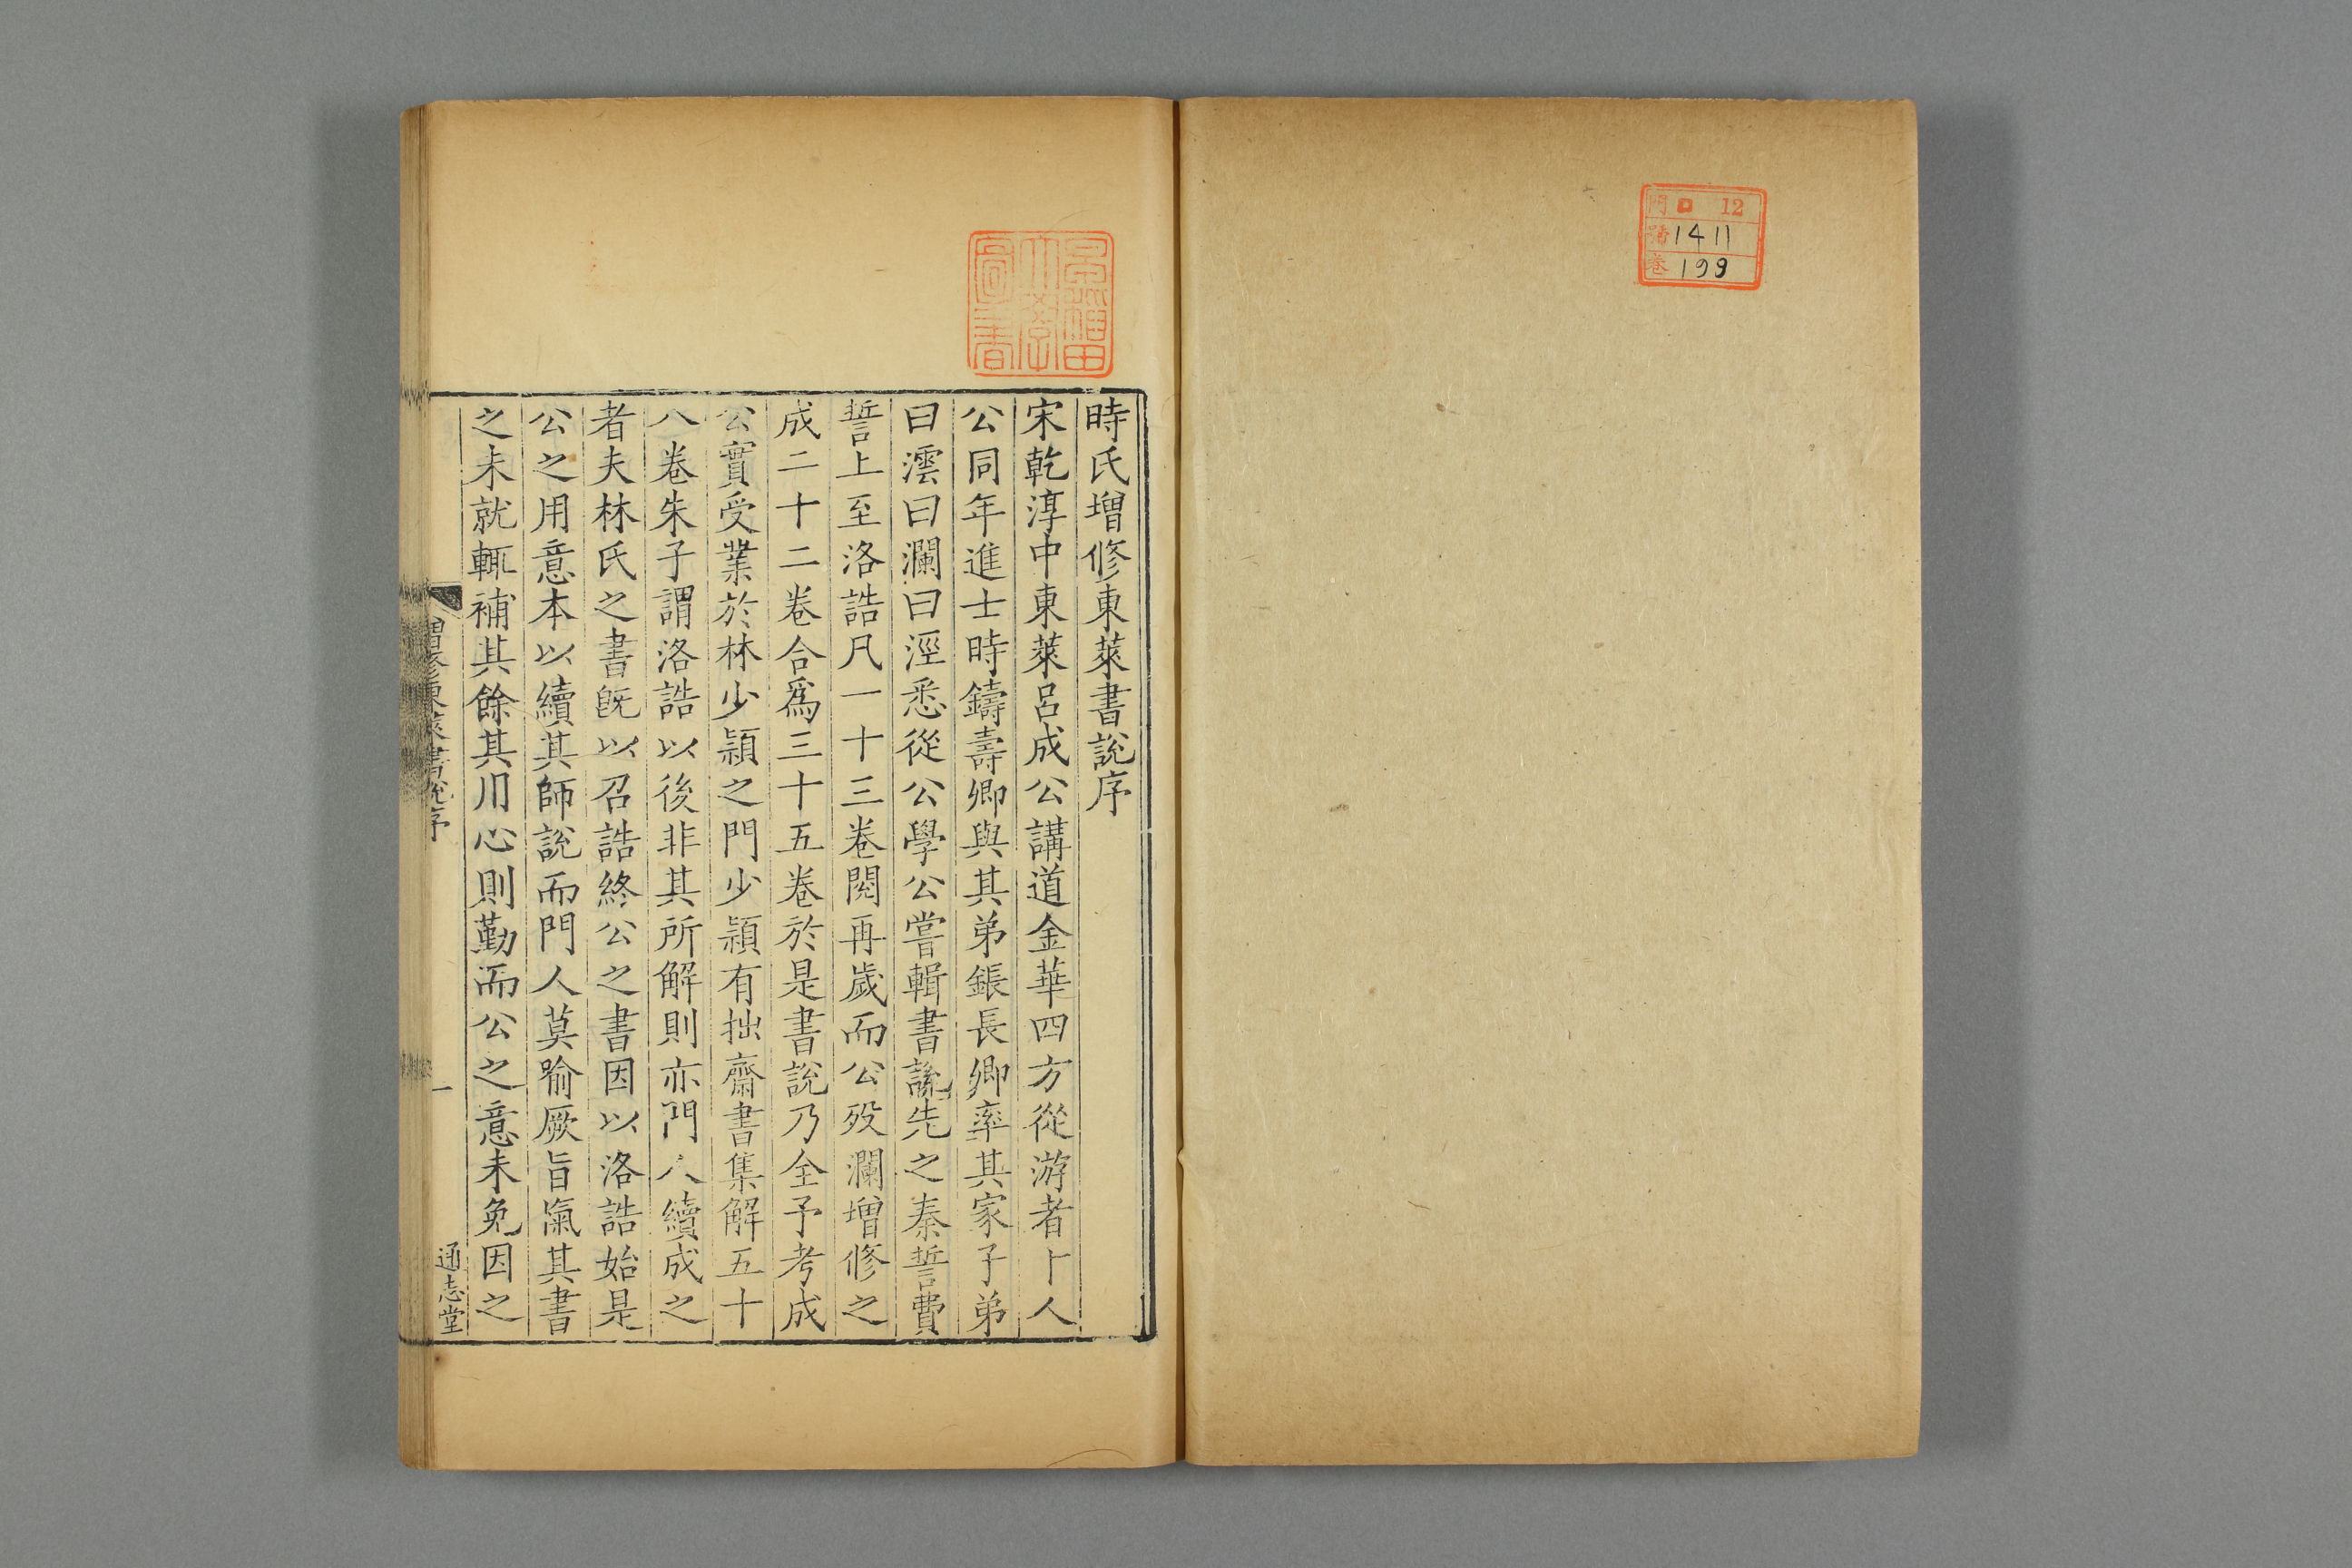 門 口 12
號 1411
卷 199
早稲田
大學
圖書
時氏增修東萊書說序
宋乾淳中東萊呂成公講道金華四方從游者十人
公同年進士時鑄壽卿與其弟鋹長卿率其家子弟
曰澐曰瀾曰涇悉從公學公嘗輯書說先之秦誓費
誓上至洛誥凡一十三卷閱再歲而公歿瀾增修之
成二十二卷合爲三十五卷於是書說乃全予考成
公實受業於林少穎之門少穎有拙齋書集解五十
八卷朱子謂洛誥以後非其所解則亦門人續成之
者夫林氏之書旣以召誥終公之書因以洛誥始是
公之用意本以續其師說而門人莫喻厥旨漓其書
之未就輒補其餘其用心則勤而公之意未免因之
增修東萊書說序
一
通志堂